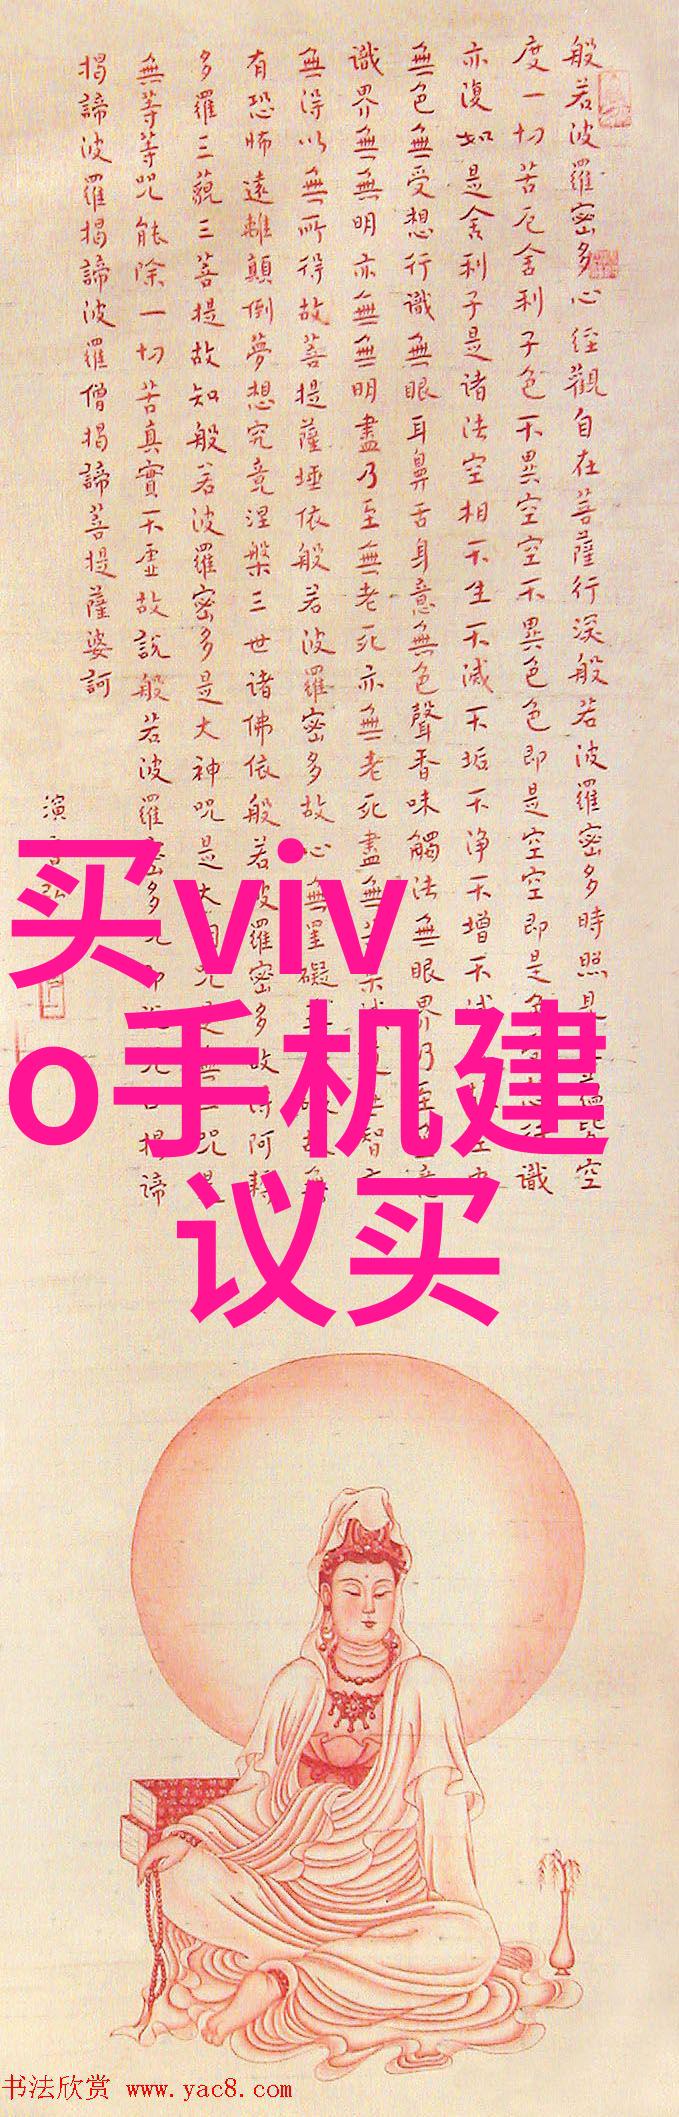 般若波羅密多心经觀自在菩薩行深般若波羅密多時照見蘊皆空
度一切苦厄舍利子色不異空空不異色色即是空空即是色行識
亦復如是舍利子是诸法空相不生不滅不垢不净不增不空中
無色無受想行識無眼耳鼻舌身意無色聲香味觸法無眼界乃至無意
識界無無明亦無無明盡乃至無老死亦無老死盡無智亦
無得以無所得故菩提薩埵依般若波羅密多故心無罣礙故無
有恐怖遠離顛倒夢想究竟涅槃三世诸佛依般若波羅密多故得阿耨
多羅三藐三菩提故知般若波羅密多是大神咒是大明咒是無上咒是
無等等咒能除一切苦真實不虚故説般若波羅密多咒即說咒曰揭諦
揭諦波羅揭諦波羅僧揭諦菩提薩婆訶
演音
买viv
o手机建
议买
书法欣赏 www.yac8.com